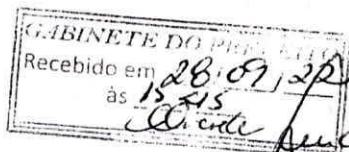 GABINETE DO PREFEITO
Recebido em 28/09/20
às 15:45